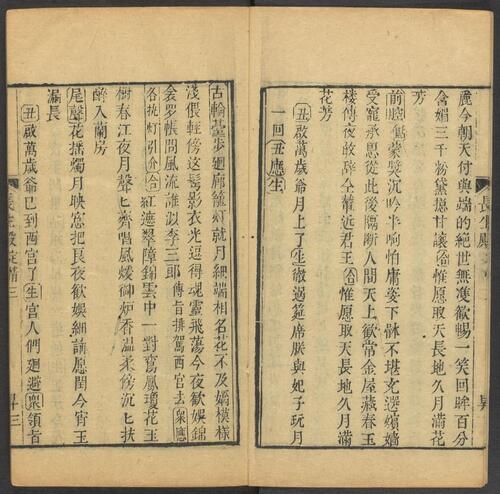 麗今朝天付與端的絕世無雙歡暢一笑回眸百分
含媚三千粉黛總甘讓合惟愿取天長地久月滿花
芳
前腔旦蒙獎沉吟半晌怕庸姿下体不堪充選嬪嬙
受寵承恩從此後隔斷人間天上歡常金屋藏春玉
樓傳夜敢辭仝輦近君王合惟愿取天長地久月滿
花芳
丑啟萬歲爺月上了生撤過筵席朕與妃子玩月
一回丑應生
古輪臺步廻廊籠灯就月細端相名花不及嬌模樣
淺偎輕傍這髩影衣光逗得魂靈飛蕩今夜歡娛錦
衾羅帳問風流誰似李三郎傳旨排駕西宮去衆應
各挑灯引介合紅遮翠障錦雲中一對鸞鳳瓊花玉
樹春江夜月聲匕齊唱風煖御炉香温柔傍沉匕扶
醉入蘭房
尾聲花搖燭月映窓把良夜歡娛細講愿閏今宵玉
漏長
丑啟萬歲爺已到西宮了生宮人們廻避衆領者